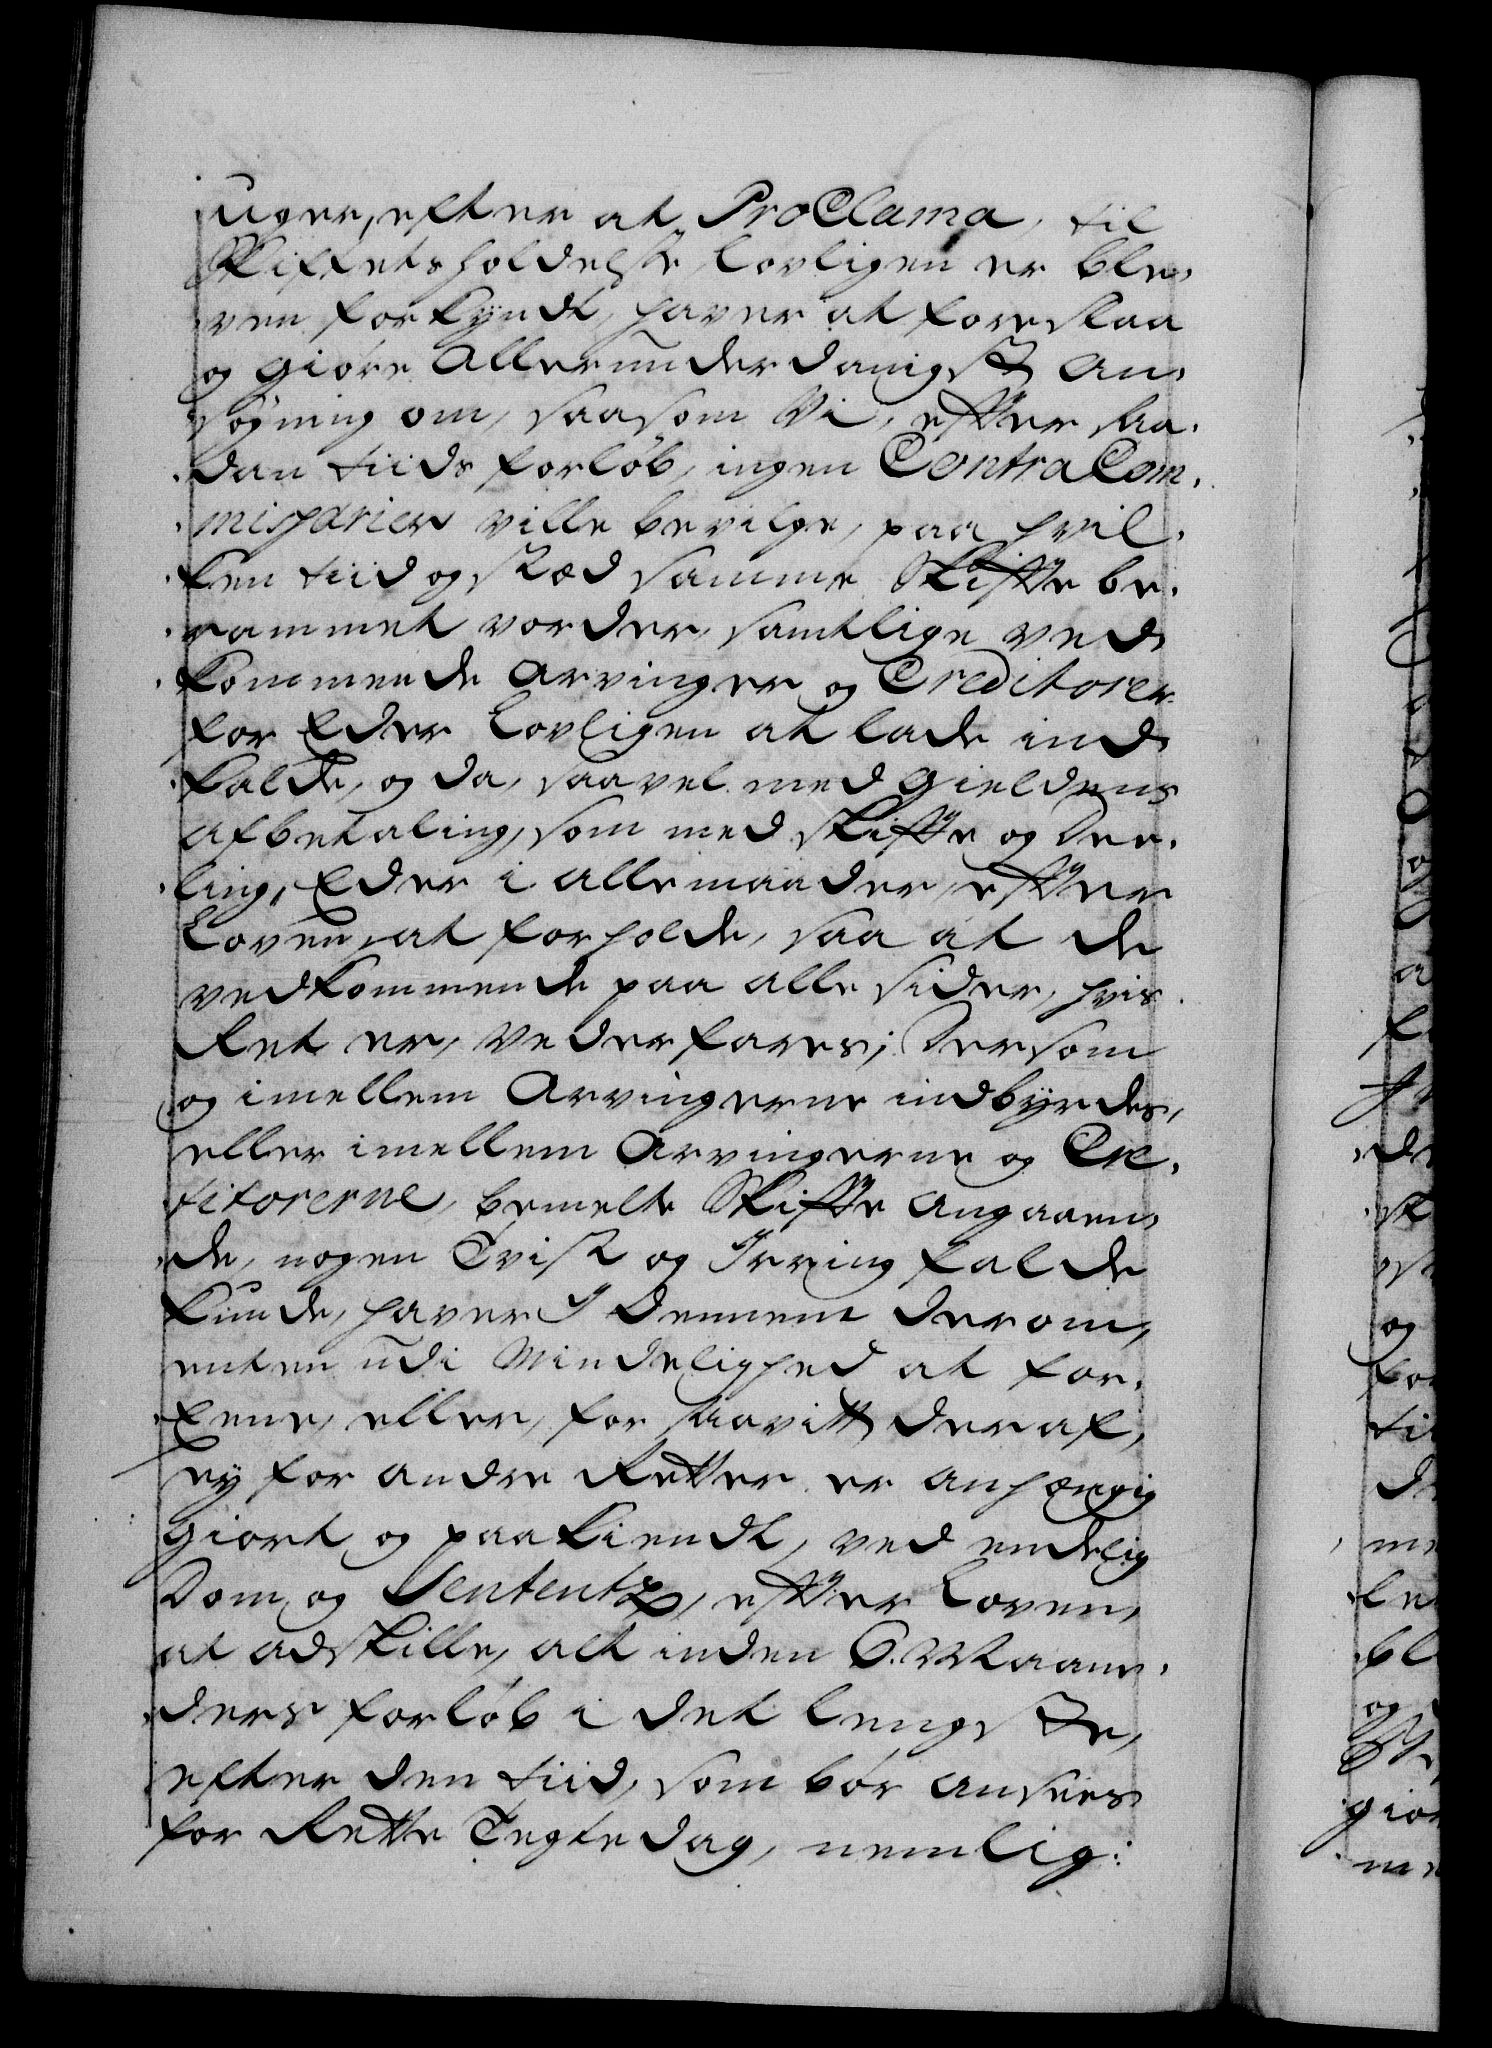 uger, efter at ProClama, til
Skiftets holdelse, lovligen er ble,
ven forkyndt, haver at foreslaa
og giøre Allerunderdanigst An,
søgning om, saasom Vi, efter saa,
dan tiids forløb, ingen Contra Com,
missarier ville bevilge, paa hvil,
ken tiid og stæd samme Skifte be,
rammet vorder, samtlige ved,
kommende Arvinger og Creditorer
for Eder lovligen at lade ind,
kalde, og da, saavel med gieldens
afbetaling, som med skifte og Dee,
ling, Eder i alle maader, efter
Loven, at forholde, saa at de
vedkommende paa alle sider, hvis
Ret er, vederfares; Dersom
og imellem Arvingerne indbyrdes,
eller imellem Arvingerne og Cre,
ditorerne, bemelte Skifte angaaen,
de, nogen Tvist og Irring falde
kunde, haver I dennem derom,
enten udi Mindelighed at for,
Eene, eller, for saavitt deraf,
ey for andre Retter er anhængig
giort og paakiendt, ved endelig
Dom og Sententz, efter Loven,
at adskille, alt inden 6. Maane,
ders forløb i det lengste,
efter den tiid, som bør ansees
for Rette Tegtedag, nemlig: